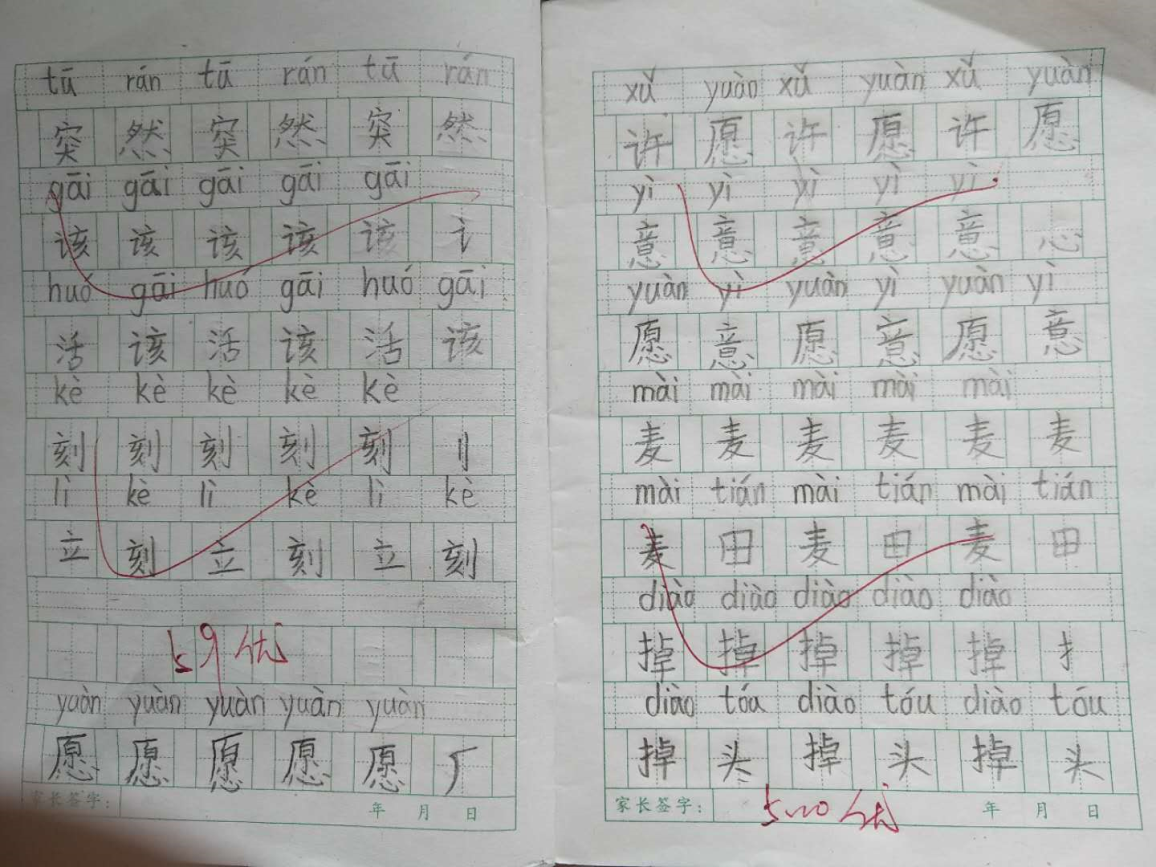 tū rán tū rán tū rán
突 然 突 然 突 然
gāi gāi gāi gāi gāi
该 该 该 该 该 讠
huó gāi huó gāi huó gāi
活 该 活 该 活 该
kè kè kè kè kè
刻 刻 刻 刻 刻 刂
lì kè lì kè lì kè
立 刻 立 刻 立 刻
5.9 优
yuàn yuàn yuàn yuàn yuàn
愿 愿 愿 愿 愿 厂
家长签字： 年 月 日
xǔ yuàn xǔ yuàn xǔ yuàn
许 愿 许 愿 许 愿
yì yì yì yì yì
意 意 意 意 意 心
yuàn yì yuàn yì yuàn yì
愿 意 愿 意 愿 意
mài mài mài mài mài
麦 麦 麦 麦 麦 麦
mài tián mài tián mài tián
麦 田 麦 田 麦 田
diào diào diào diào diào
掉 掉 掉 掉 掉 扌
diào tóu diào tóu diào tóu
掉 头 掉 头 掉 头
家长签字： 优 年 月 日